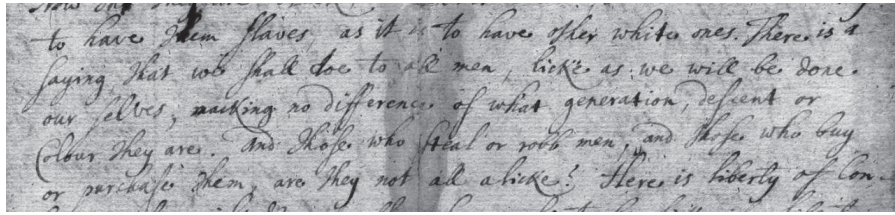 to have them slaves, as it is to have other white ones. There is a
saying that we shall doe to all men, licke as we will be done
our selves; macking no difference of what generation, descent or
Colour they are. and those who steal or robb men, and those who buy
or purchase them, are they not all alicke? Here is liberty of Con-